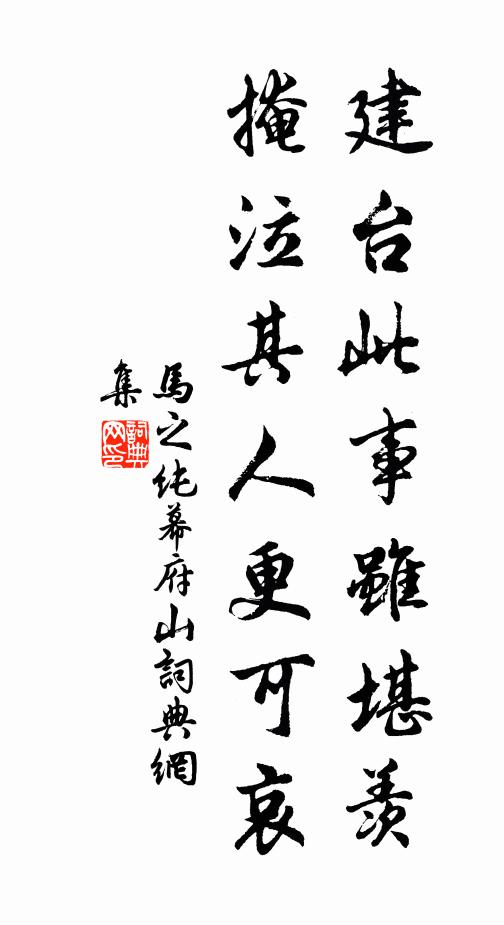 建台此事雖堪羨
掩泣其人更可哀
馬之純幕府山詞典網
集
詞典网印